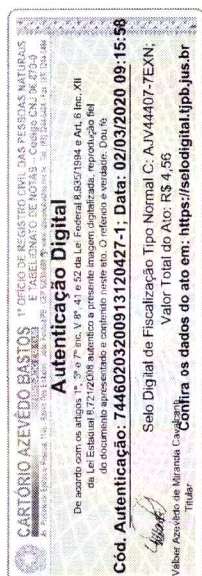 CARTÓRIO AZEVÊDO BASTOS
1º OFÍCIO DE REGISTRO CIVIL DAS PESSOAS NATURAIS
E TABELIONATO DE NOTAS - Código CNJ 06.870-0
Autenticação Digital
De acordo com os artigos 1º, 3º e 7º inc. V 8º, 41 e 52 da Lei Federal 8.935/1994 e Art. 6 Inc. XII
da Lei Estadual 8.721/2008 autentico a presente imagem digitalizada, reprodução fiel
do documento apresentado e conferido neste ato. O referido é verdade. Dou fé
Cód. Autenticação: 74460203200913120427-1; Data: 02/03/2020 09:15:58
Selo Digital de Fiscalização Tipo Normal C: AJV44407-7EXN;
Valor Total do Ato: R$ 4,56
Confira os dados do ato em: https://selodigital.tjpb.jus.br
Valber Azevêdo de Miranda Cavalcanti
Titular